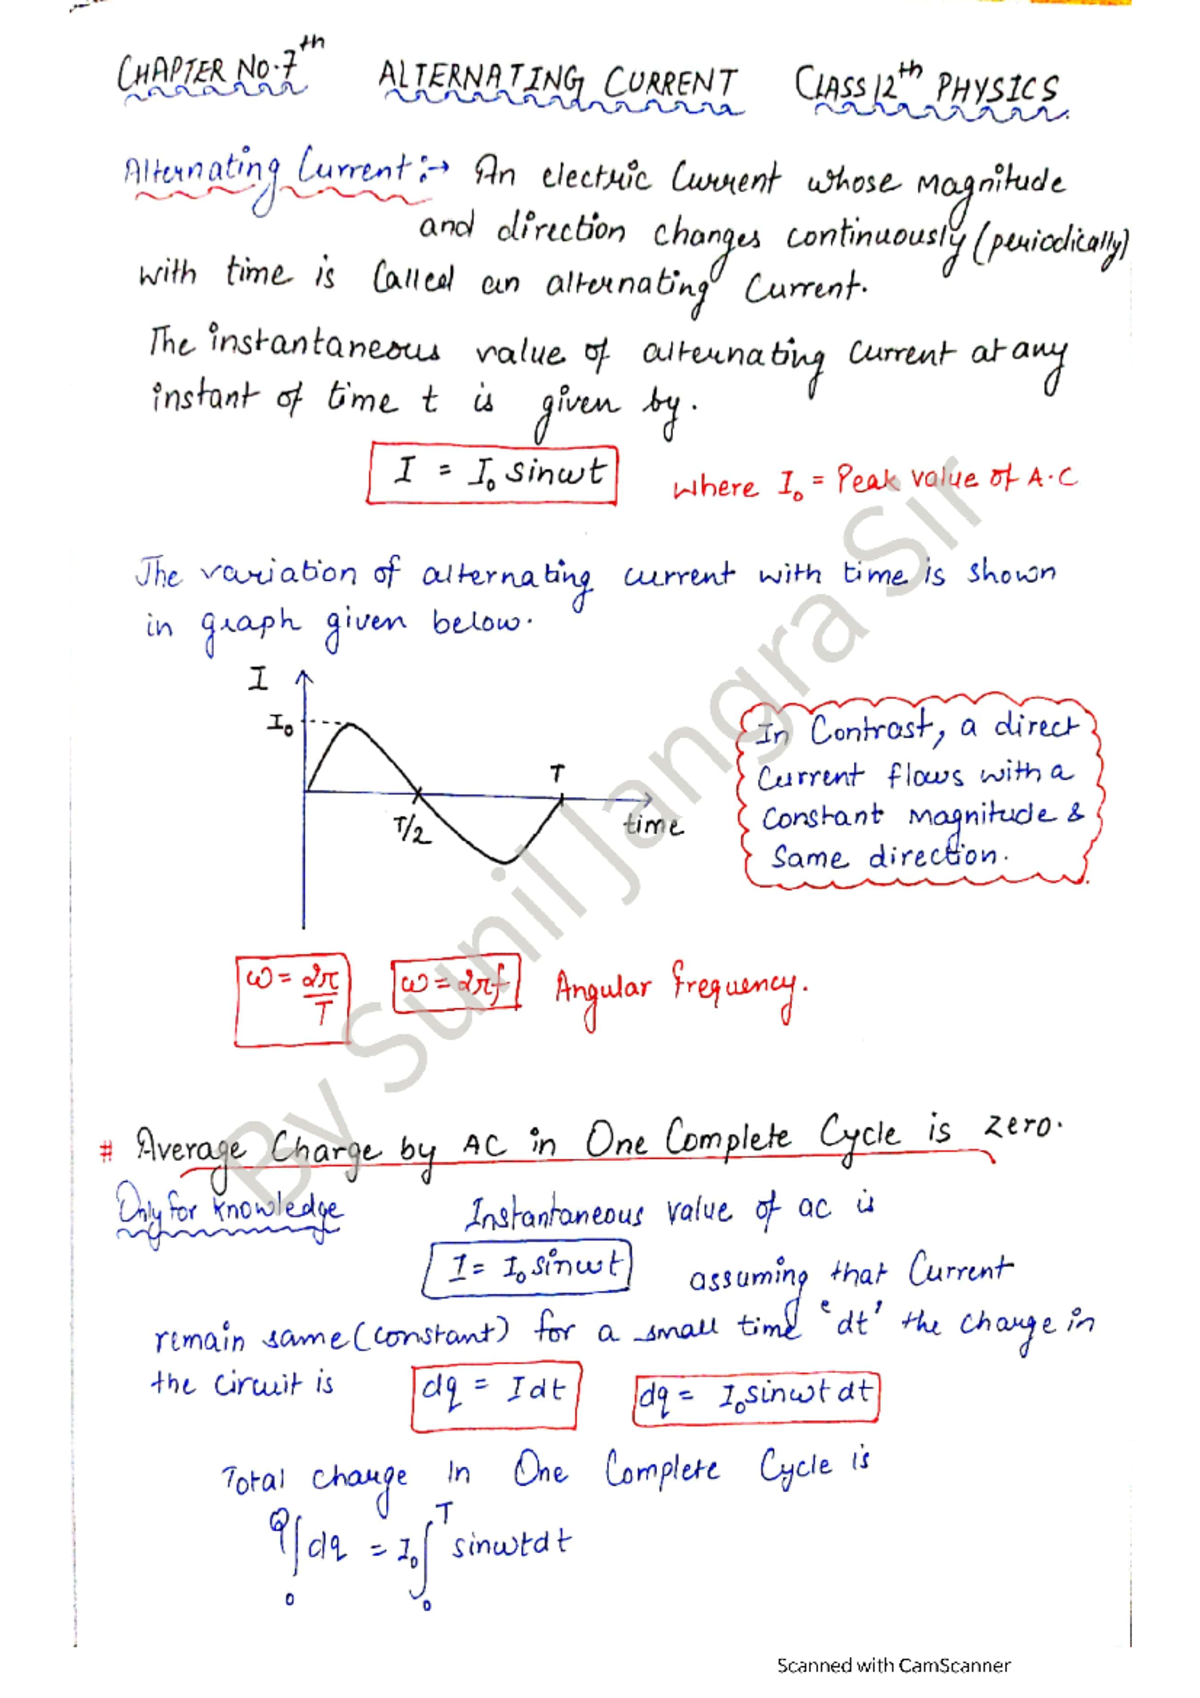 CHAPTER NO.7th ALTERNATING CURRENT CLASS 12th PHYSICS
Alternating Current:→ An electric Current whose Magnitude
and direction changes continuously (periodically)
with time is Called an alternating Current.
The instantaneous value of alternating Current at any
instant of time t is given by.
I = I₀ sinωt where I₀ = Peak value of A.C
The variation of alternating current with time is shown
in graph given below.
I
I₀
T
T/2
time
In Contrast, a direct
Current flows with a
Constant Magnitude &
Same direction.
ω = 2π/T ω = 2πf Angular frequency.
# Average Charge by AC in One Complete Cycle is zero.
Only for Knowledge Instantaneous value of ac is
I = I₀ sinωt assuming that Current
remain same (constant) for a small time 'dt' the charge in
the circuit is dq = Idt dq = I₀sinωt dt
Total charge In One Complete Cycle is
∫₀^Q dq = I₀ ∫₀^T sinωtdt
By Sunil Jangra Sir
Scanned with CamScanner